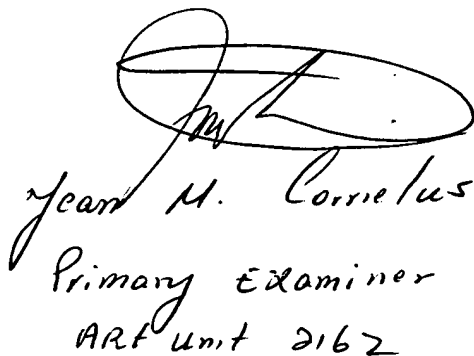 Jean M. Cornelus
Primary Examiner
ARt Unit 2162